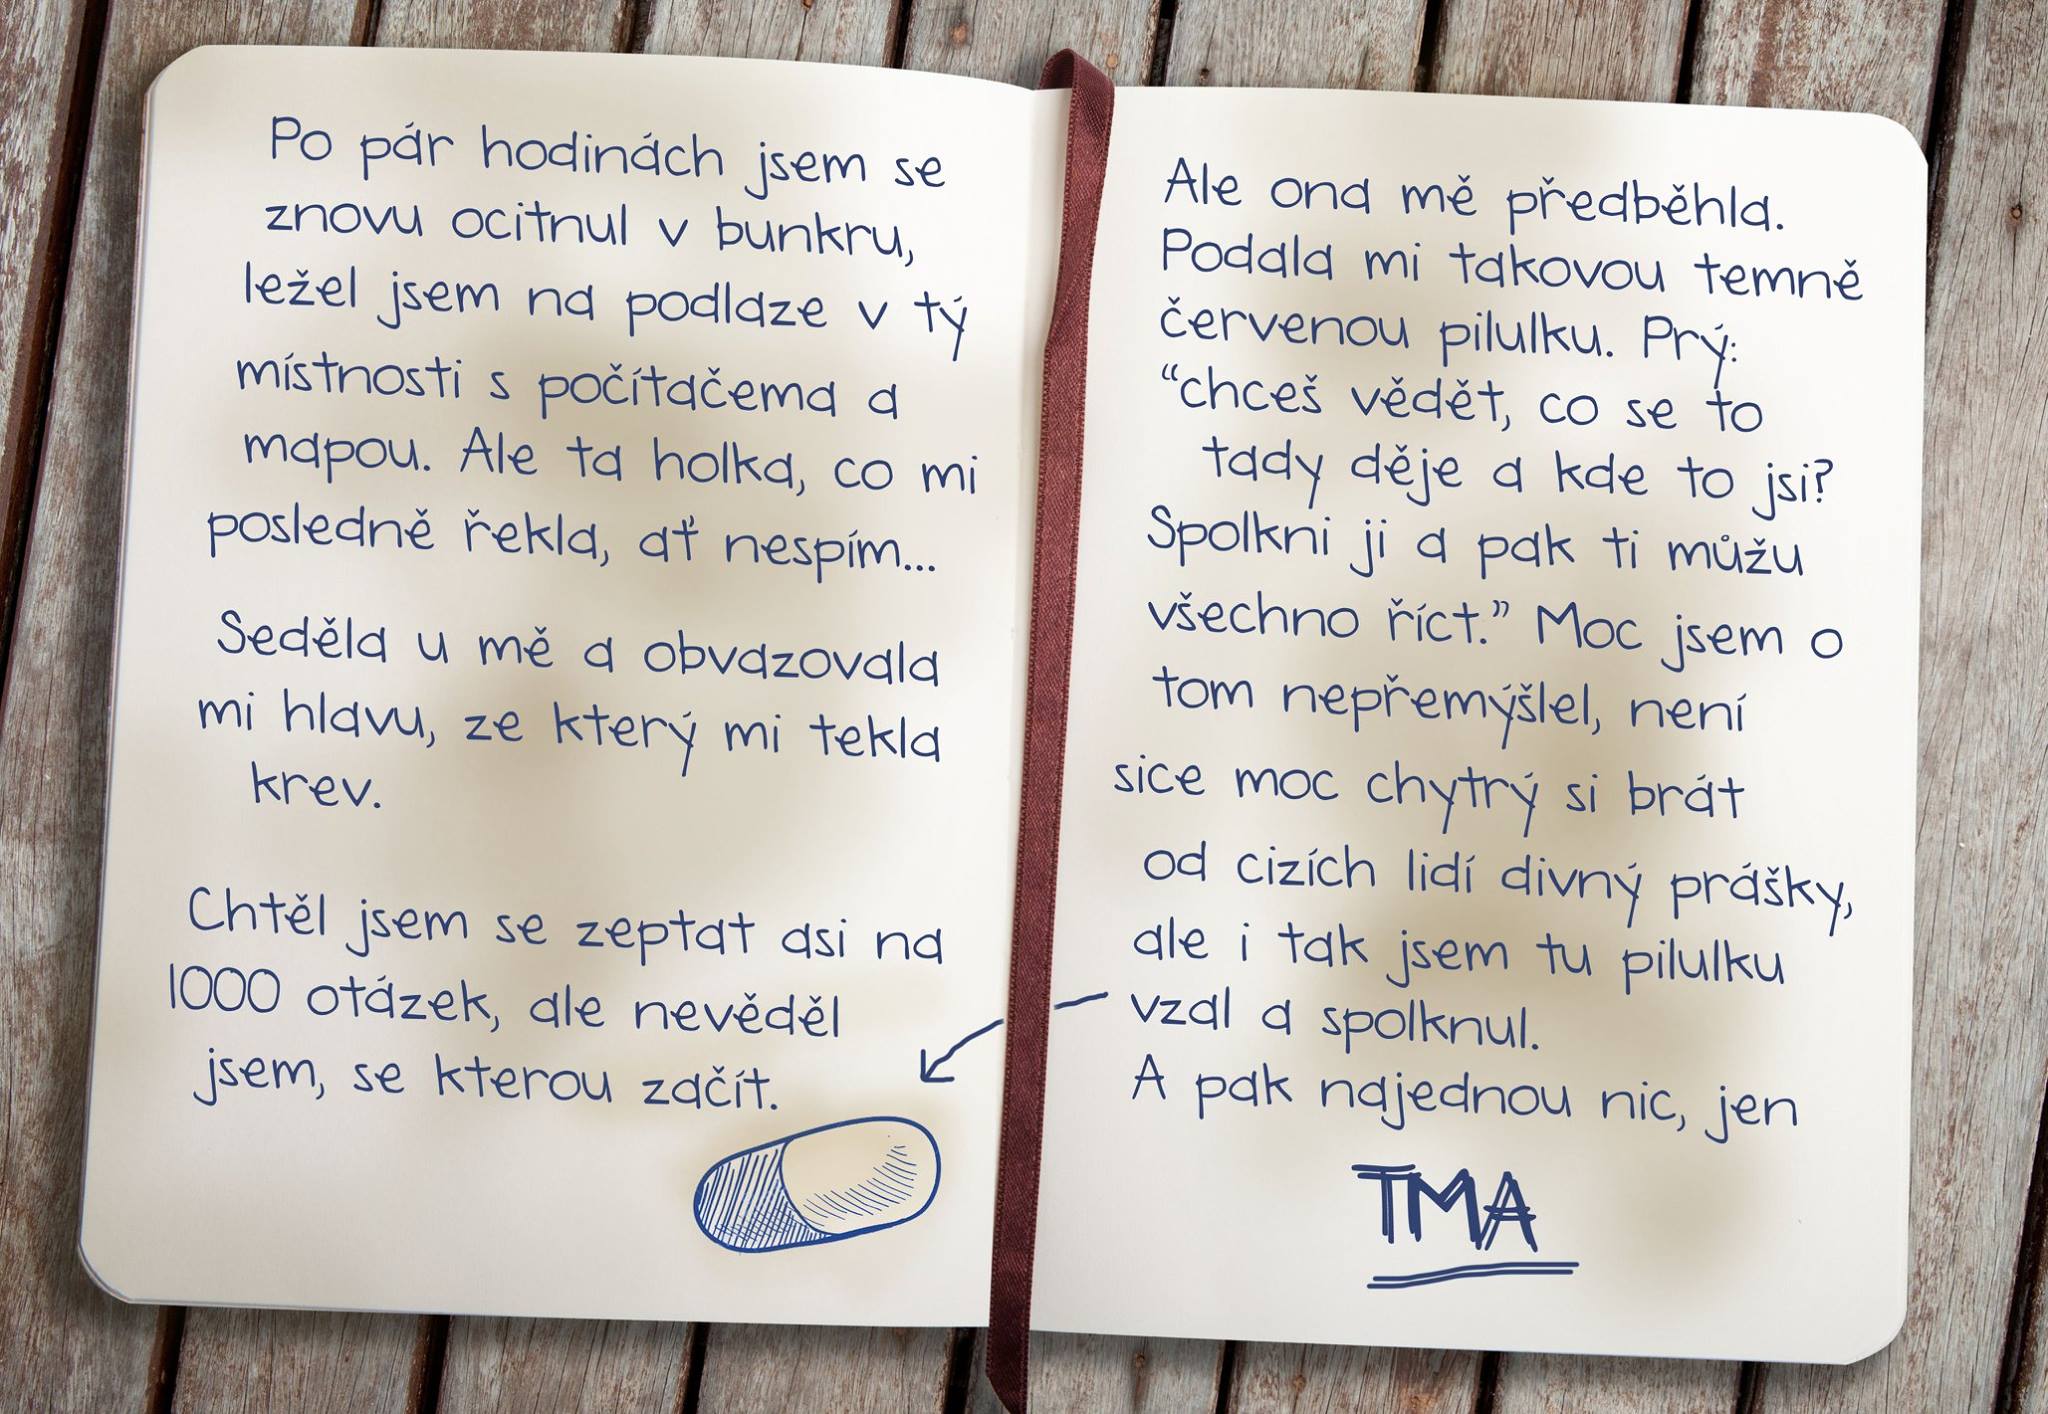 Po pár hodinách jsem se
znovu ocitnul v bunkru,
ležel jsem na podlaze v tý
místnosti s počítačema a
mapou. Ale ta holka, co mi
posledně řekla, ať nespím...
Seděla u mě a obvazovala
mi hlavu, ze který mi tekla
krev.
Chtěl jsem se zeptat asi na
1000 otázek, ale nevěděl
jsem, se kterou začít.
Ale ona mě předběhla.
Podala mi takovou temně
červenou pilulku. Prý:
“chceš vědět, co se to
tady děje a kde to jsi?
Spolkni ji a pak ti můžu
všechno říct.” Moc jsem o
tom nepřemýšlel, není
sice moc chytrý si brát
od cizích lidí divný prášky,
ale i tak jsem tu pilulku
vzal a spolknul.
A pak najednou nic, jen
TMA